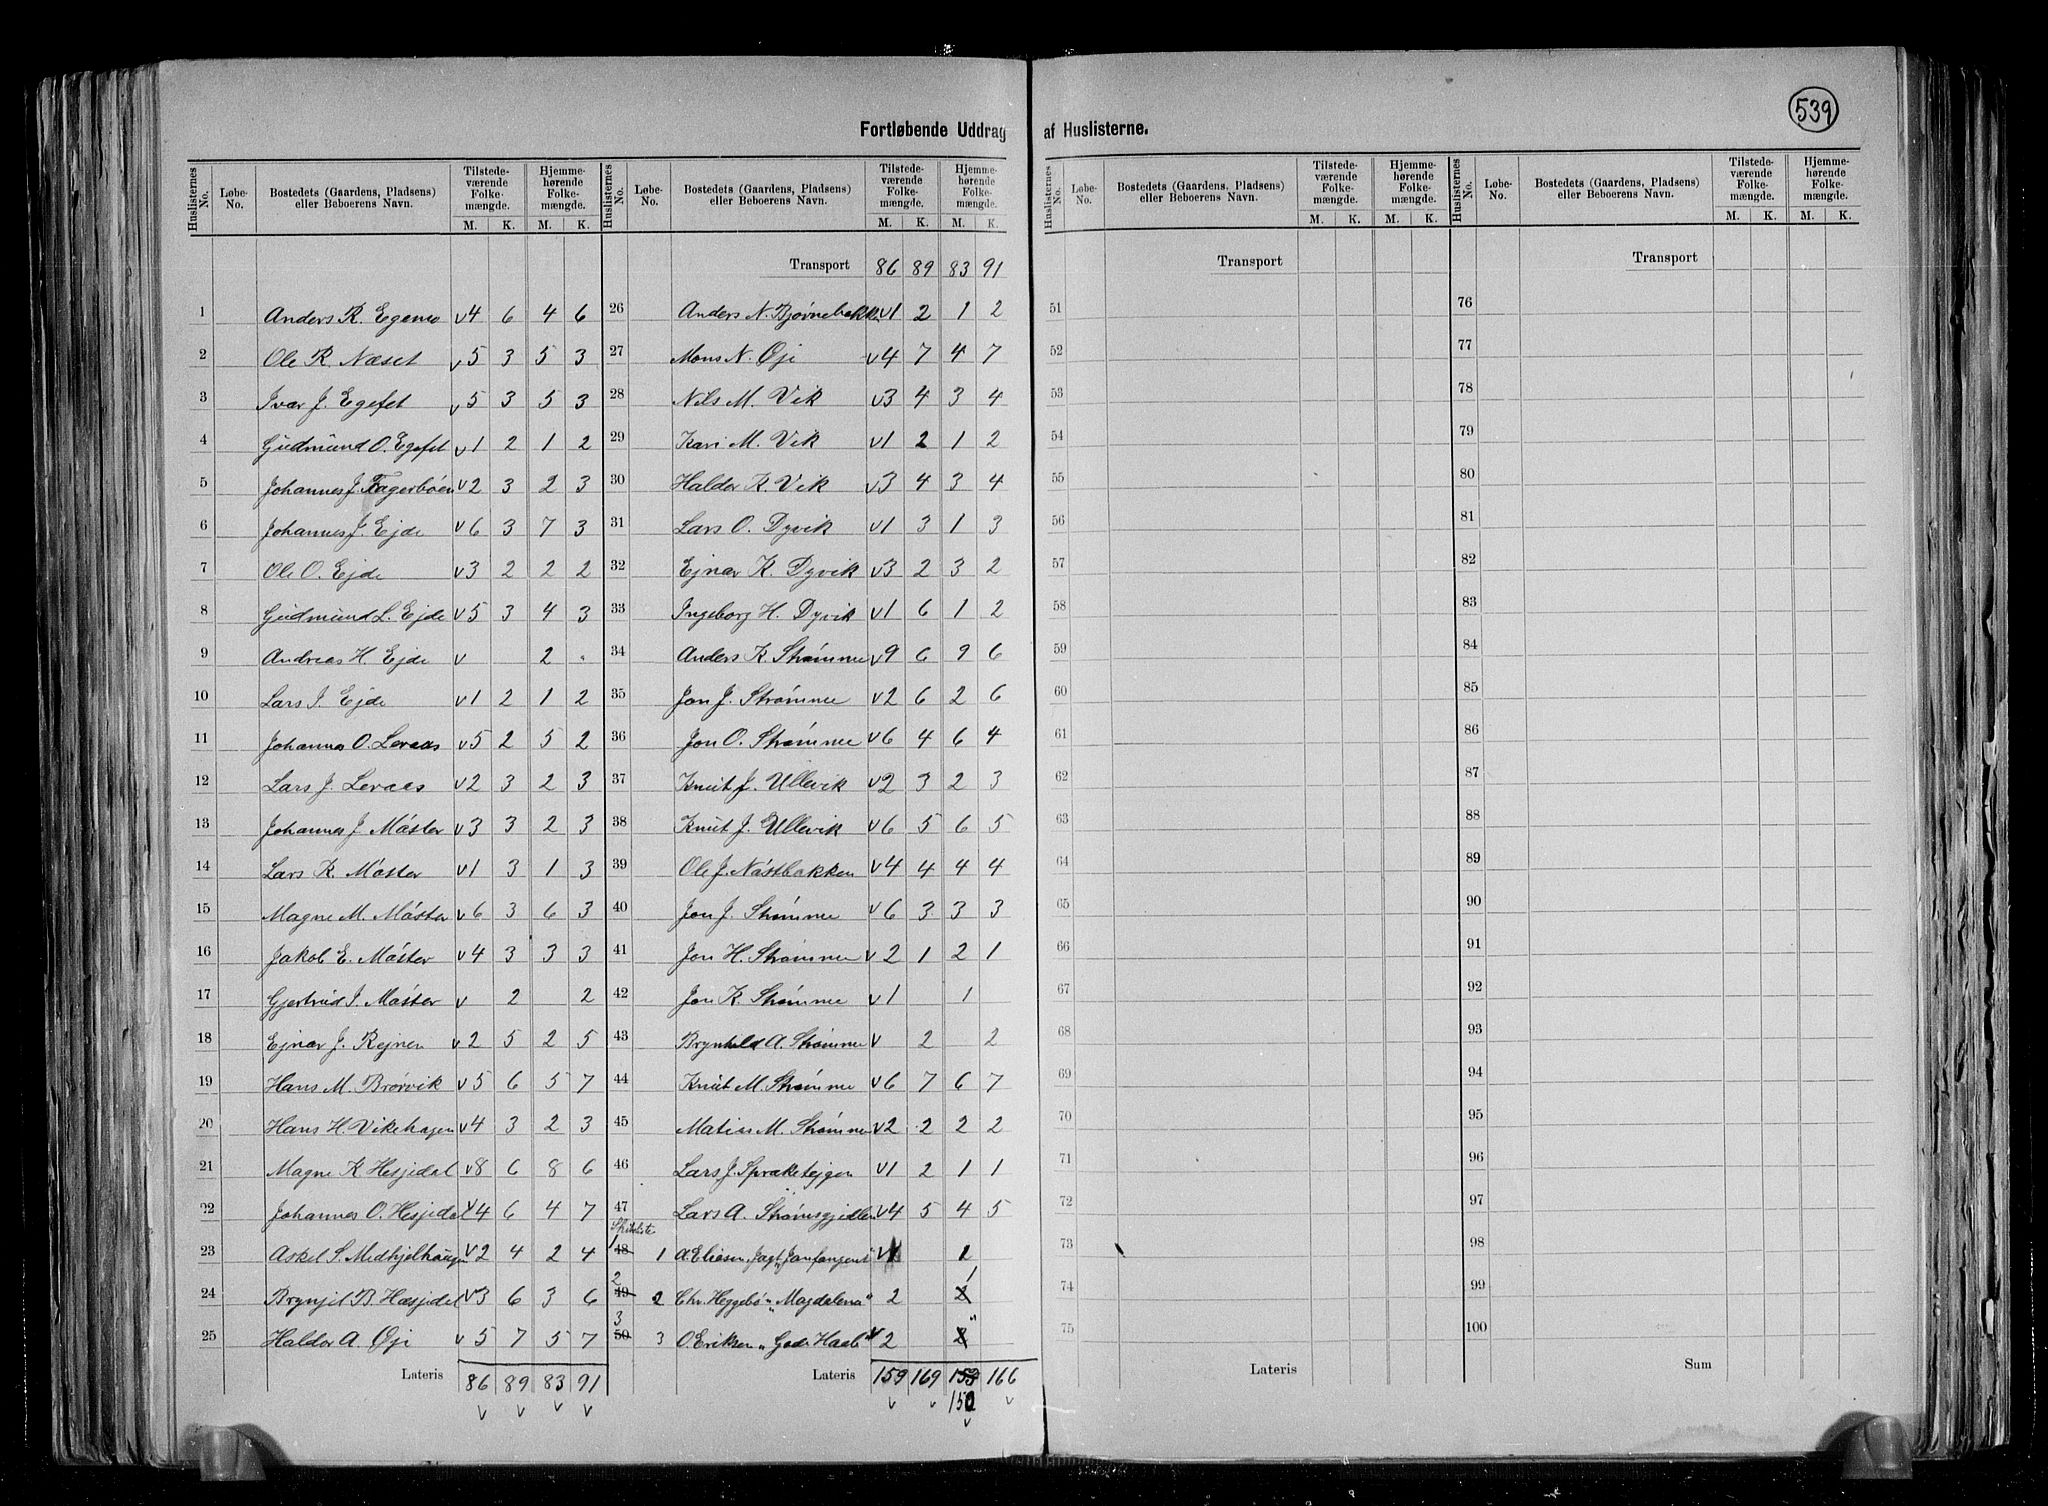 539
Fortløbende Uddrag af Huslisterne.
Huslisternes No. Løbe-No. Bostedets (Gaardens, Pladsens) eller Beboerens Navn. Tilstedeværende Folkemængde. M. K. Hjemmehørende Folkemængde. M. K.
1 Anders R. Egemo v4 6 4 6
2 Ole R. Næset v5 3 5 3
3 Ivar J. Egefet v5 3 5 3
4 Gudmund O. Egefet v1 2 1 2
5 Johannes J. Fagerbøen v2 3 2 3
6 Johannes J. Ejde v6 3 7 3
7 Ole O. Ejde v3 2 2 2
8 Gudmund L. Ejde v5 3 4 3
9 Andreas H. Ejde v 2
10 Lars J. Ejde v1 2 1 2
11 Johannes O. Leraas v5 2 5 2
12 Lars J. Leraas v2 3 2 3
13 Johannes J. Møster v3 3 2 3
14 Lars K. Møster v1 3 1 3
15 Magne M. Møster v6 3 6 3
16 Jakob E. Møster v4 3 3 3
17 Gjertrud J. Møster v 2 2
18 Ejnar J. Rejnen v2 5 2 5
19 Hans M. Brørvik v5 6 5 7
20 Hans H. Vikehagen v4 3 2 3
21 Magne K. Hesjidal v8 6 8 6
22 Johannes O. Hesjidal v4 6 4 7
23 Askel S. Midhjelhaugen v2 4 2 4
24 Brynjil B. Hæsjidal v3 6 3 6
25 Haldor A. Øji v 5 7 5 7
Lateris 86 89 83 91
v v v v
Huslisternes No. Løbe-No. Bostedets (Gaardens, Pladsens) eller Beboerens Navn. Tilstedeværende Folkemængde. M. K. Hjemmehørende Folkemængde. M. K.
Transport 86 89 83 91
26 Anders N. Bjørnebakken v1 2 1 2
27 Mons N. Øji v4 7 4 7
28 Nils M. Vik v3 4 3 4
29 Kari M. Vik v1 2 1 2
30 Haldor K. Vik v3 4 3 4
31 Lars O. Dyvik v1 3 1 3
32 Ejnar K. Dyvik v3 2 3 2
33 Ingeborg H. Dyvik v1 6 1 2
34 Anders K. Strømme v9 6 9 6
35 Jon J. Strømme v2 6 2 6
36 Jon O. Strømme v6 4 6 4
37 Knut J. Ullevik v2 3 2 3
38 Knut J. Ullevik v6 5 6 5
39 Ole J. Nøstbakken v4 4 4 4
40 Jon J. Strømme v6 3 3 3
41 Jon H. Strømme v2 1 2 1
42 Jon K. Strømme v1 1
43 Brynhild A. Strømme v 2 2
44 Knut M. Strømme v6 7 6 7
45 Matias M. Strømme v2 2 2 2
46 Lars J. Spraketejgen v1 2 1 1
47 Lars A. Strømsgjedlen v4 5 4 5
Skibsliste
1 48 1 A. Eliesen, Jagt „Jomfangent" v1 1
2 49 2 Chr. Heggebø „Magdalena" 2 2 1
3 50 3 O. Eriksen „Gode Haab" v 2 2 "
Lateris 159 169 153 166
150
v v v v
Huslisternes No. Løbe-No. Bostedets (Gaardens, Pladsens) eller Beboerens Navn. Tilstedeværende Folkemængde. M. K. Hjemmehørende Folkemængde. M. K.
Transport
51
52
53
54
55
56
57
58
59
60
61
62
63
64
65
66
67
68
69
70
71
72
73
74
75
Lateris
Huslisternes No. Løbe-No. Bostedets (Gaardens, Pladsens) eller Beboerens Navn. Tilstedeværende Folkemængde. M. K. Hjemmehørende Folkemængde. M. K.
Transport
76
77
78
79
80
81
82
83
84
85
86
87
88
89
90
91
92
93
94
95
96
97
98
99
100
Sum